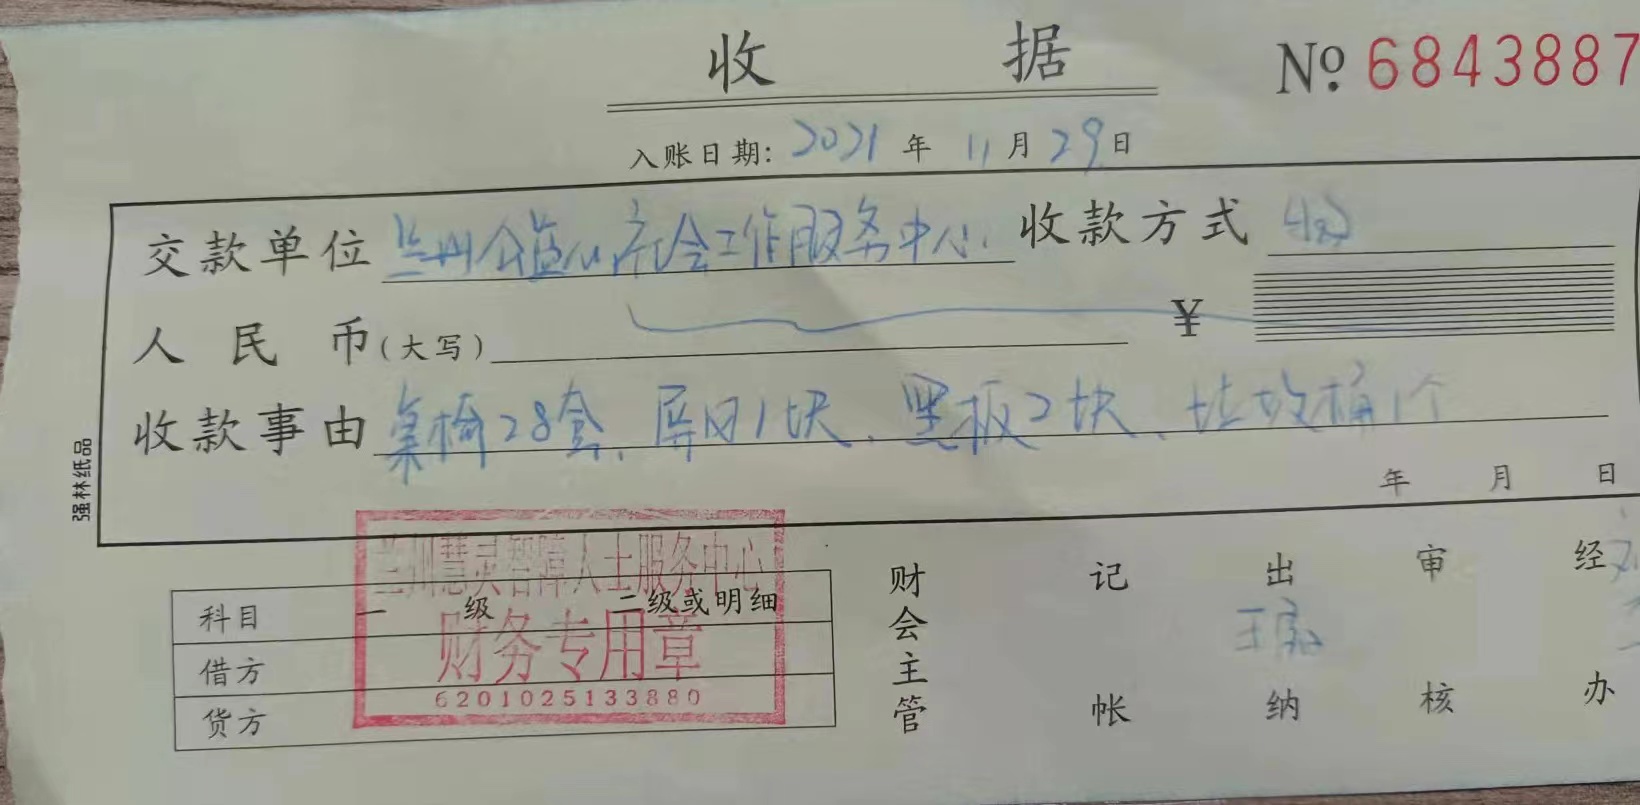 收 据
№ 6843887
入账日期: 2021 年 11 月 29 日
交款单位 兰州公益心社会工作服务中心 收款方式
人民币(大写) ¥
收款事由 桌椅28套、屏风1块、黑板2块、垃圾桶1个
年 月 日
强林纸品
兰州慧灵智障人士服务中心
财务专用章
6201025133880
科目 一 级 二级或明细
借方
货方
财会主管 记帐 出纳 审核 经办